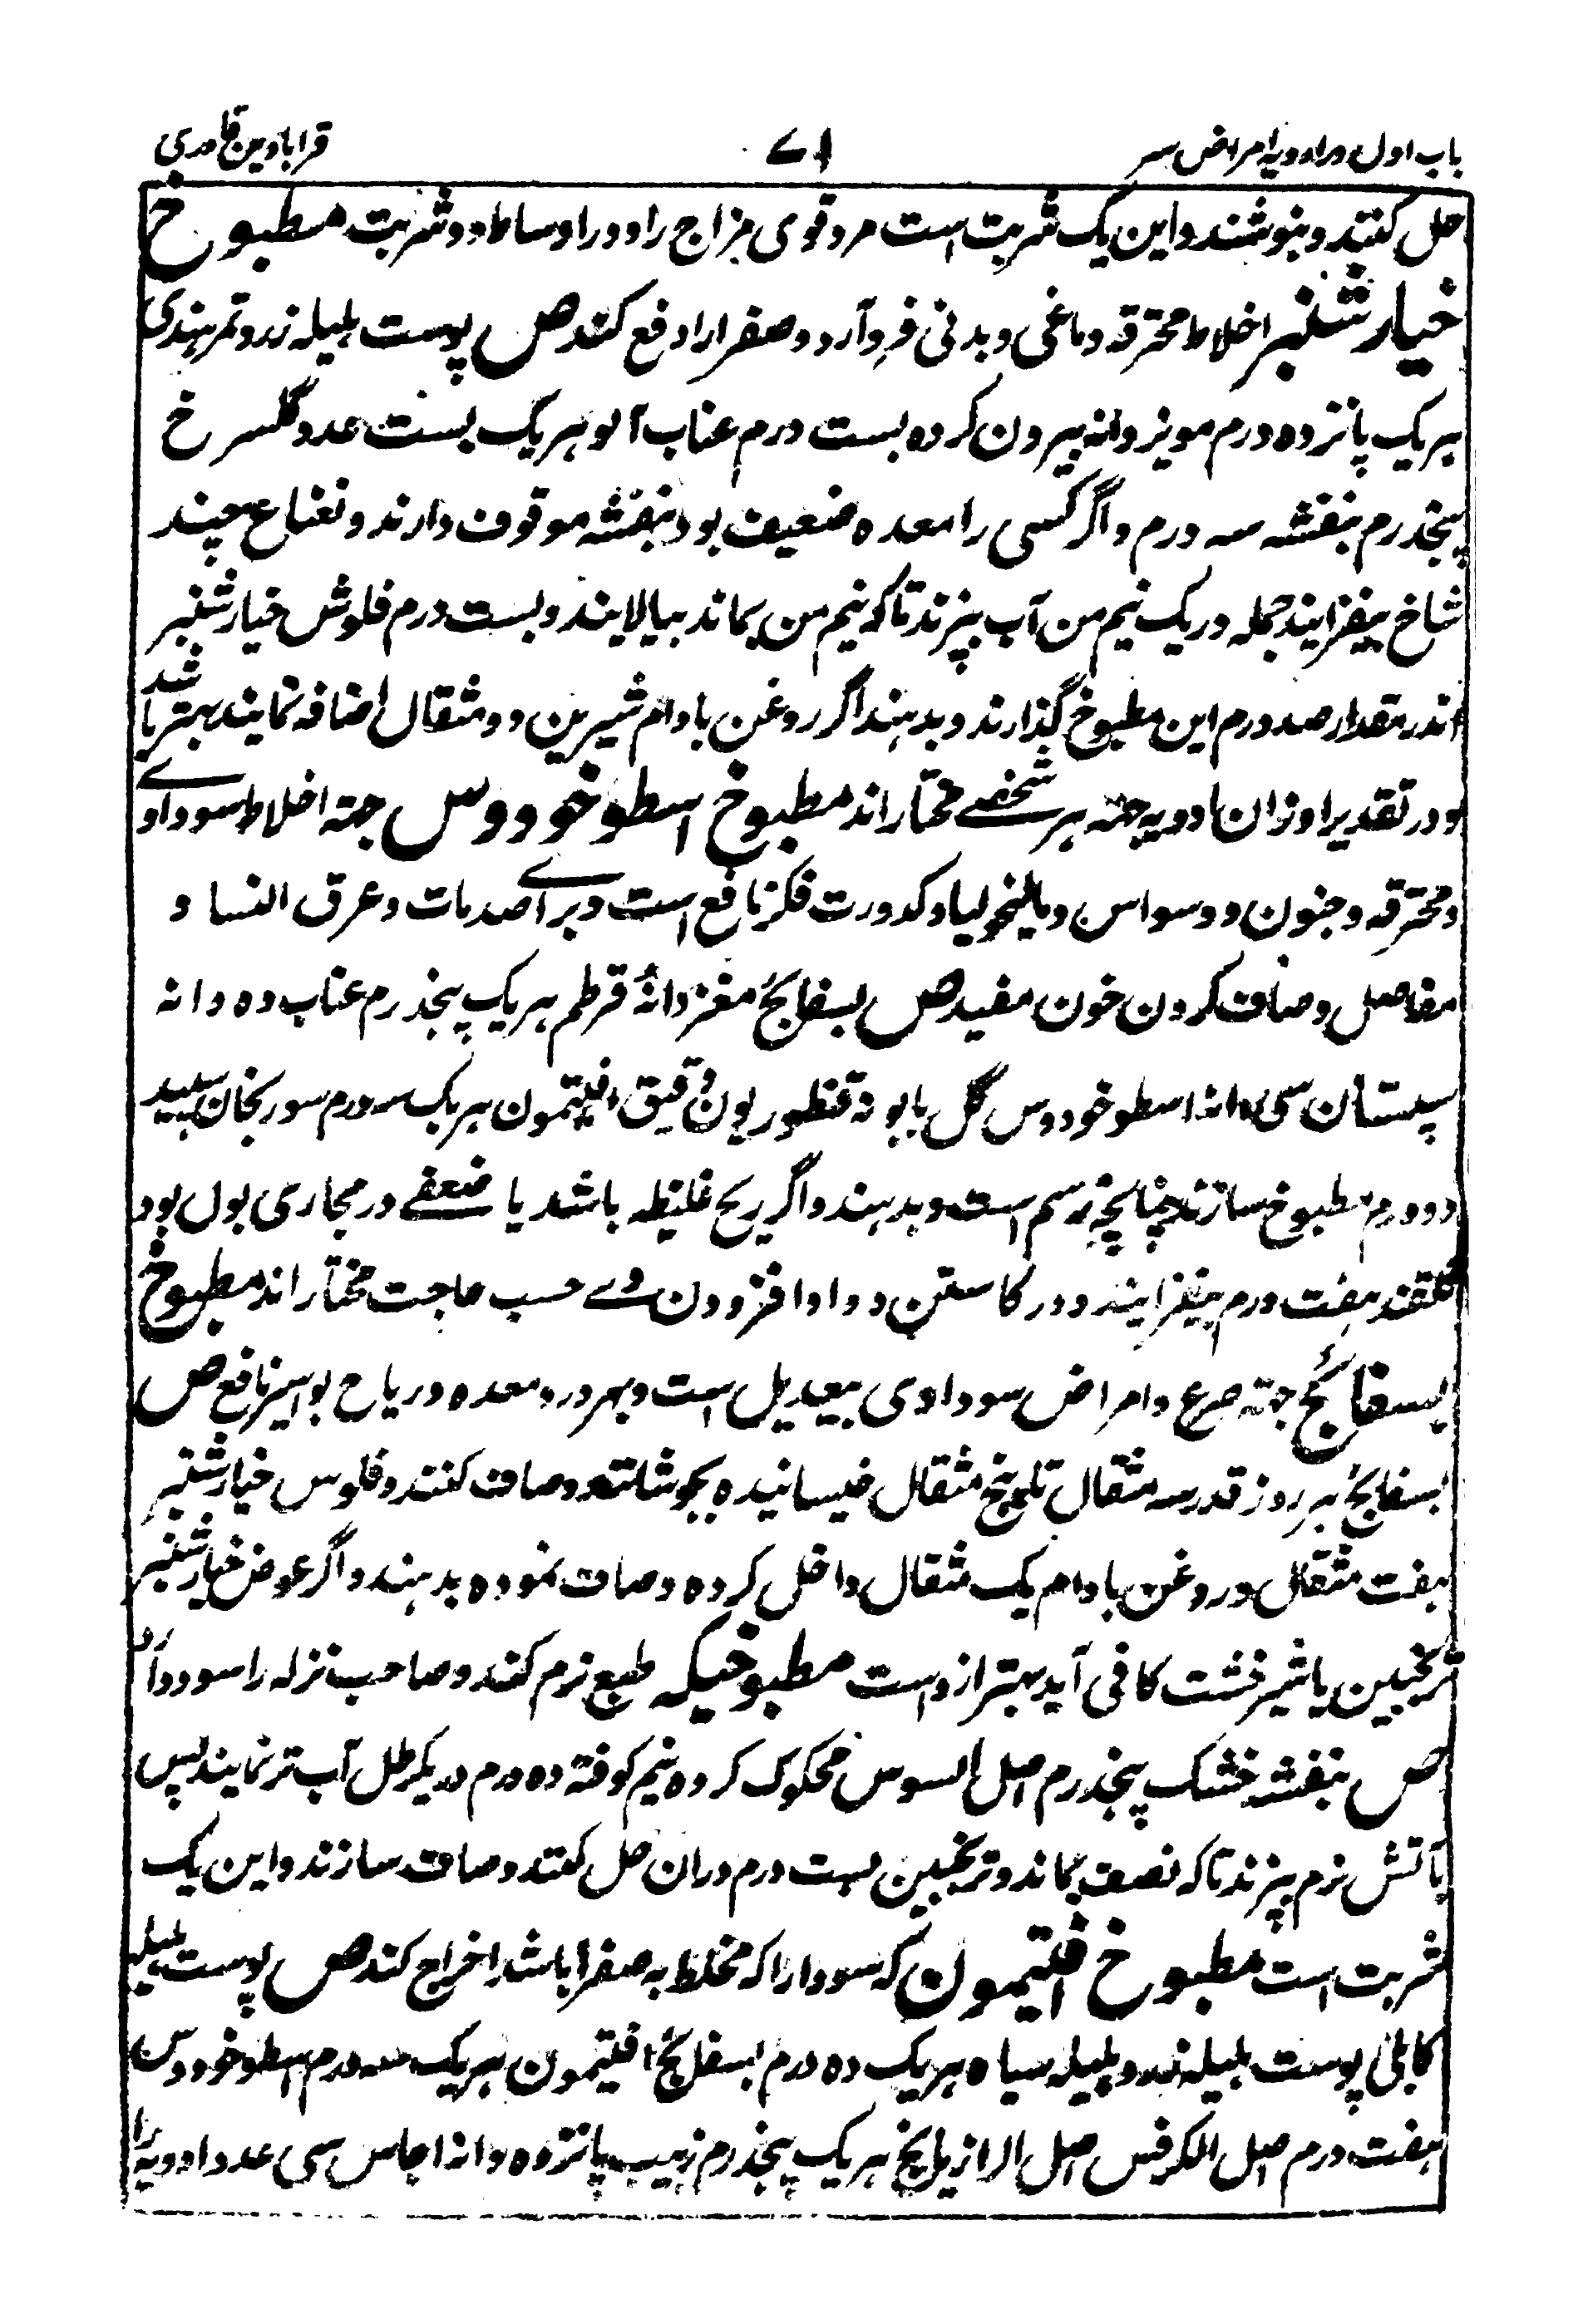 باب اول در ادویه امراض سر
۷۱
قرابادین قادری
حل کنند و بنوشند و این یک شربت است مرد قوی مزاج را و در اوساط دو شربت مطبوخ
خیار شنبر اخلاط محترقه دماغی و بدنی فرو آرد و صفرا را دفع کند ص پوست ہلیلہ زرد تمرہندی
ہریک پانزده درم مویز دانه بیرون کرده بست درم عناب آلو ہریک بست عدد گلسرخ
پنجدرم بنفشه سه درم و اگر کسی را معده ضعیف بود بنفشه موقوف دارند و نعناع چند
شاخ بیفزایند جمله در یک نیم من آب بپزند تا که نیم من بماند بپالایند و بست درم فلوس خیار شنبر
اندر مقدار صد درم این مطبوخ گذارند و بدہند اگر روغن بادام شیرین دو مثقال اضافه نمایند بهتر باشد
و در تقدیر اوزان ادویه جہته ہر شخصے مختار اند مطبوخ اسطوخودوس جہتہ اخلاط سوداوے
و محترقه و جنون و وسواس و مالیخولیا و کدورت فکر نافع است و براے صدمات و عرق النسا و
مفاصل و صاف کردن خون مفید ص بسفائج مغز دانۂ قرطم ہریک پنجدرم عناب ده دانه
سپستان سی دانه اسطوخودوس گل بابونه قنطوریون دقیق افیتمون ہریک سه درم سورنجان سپید
دو درم مطبوخ سازند چنانچه رسم است و بدہند و اگر ریح غلیظه باشد یا ضعفے در مجاری بول بود
گلقند ہفت درم بیفزایند و در کاستن دوا و افزودن وے حسب حاجت مختار اند مطبوخ
بسفائج جہتہ صرع و امراض سوداوی بیعدیل است و بہر درد معده و ریاح بواسیر نافع ص
بسفائج ہر روز قدر سه مثقال تا پنج مثقال خیسانیده بجوشانند و صاف کنند و فلوس خیار شنبر
ہفت مثقال و روغن بادام یک مثقال داخل کرده و صاف نموده بدہند و اگر عوض خیار شنبر
ترنجبین یا شیرخشت کافی آید بهتر از وست مطبوخیکه طبع نرم کند و صاحب نزله را سود دارد
ص بنفشه خشک پنجدرم اصل السوس محکوک کرده نیم کوفته ده درم در یکرطل آب تر نمایند پس
بآتش نرم بپزند تا که نصف بماند و ترنجبین بست درم دران حل کنند و صاف سازند و این یک
شربت است مطبوخ افتیمون که سودا را که مخلط به صفرا باشد اخراج کند ص پوست ہلیلہ
کابلی پوست ہلیلہ زرد ہلیلہ سیاه ہریک ده درم بسفائج افتیمون ہریک سه درم اسطوخودوس
ہفت درم اصل الکرفس اصل الرازیانج ہریک پنجدرم زبیب پانزده دانه اجاص سی عدد ادویه را